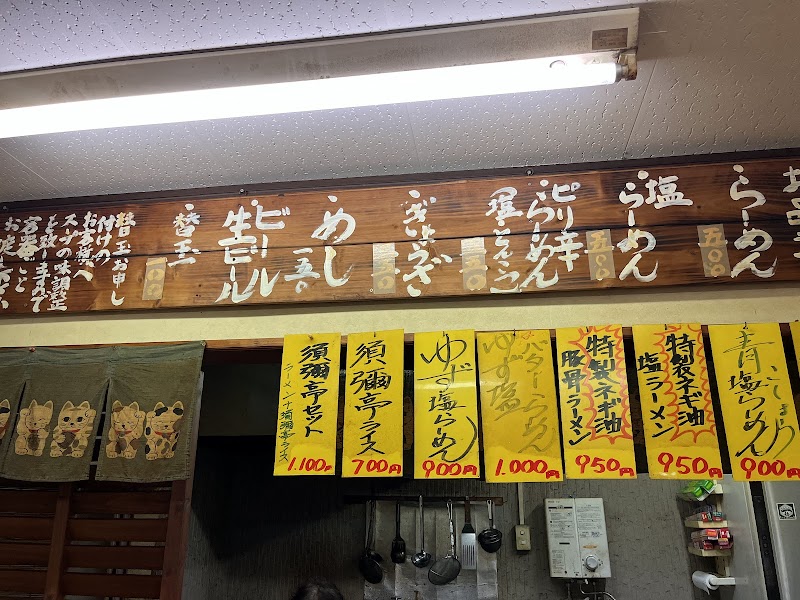 らーめん
五〇〇
塩
らーめん
五五〇
ピリ辛
らーめん
塩とんこつ
ぎょうざ
めし
一五〇
ビール
生ビール
替玉
一〇〇
替玉お申し
付けの
お客様へ
スープの味調整
を致しますので
容器ごと
須彌亭セット
ラーメン+須彌亭ライス
1.100円
須彌亭ライス
700円
ゆず塩らーめん
900円
バターらーめん
ゆず塩
1.000円
特製ネギ油
豚骨ラーメン
950円
特製ネギ油
塩ラーメン
950円
青こしょう
塩らーめん
900円